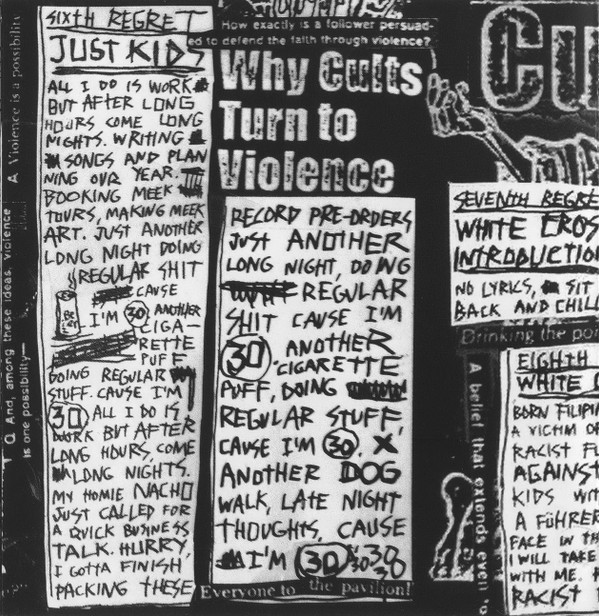 SIXTH REGRET
JUST KIDS
ALL I DO IS WORK.
BUT AFTER LONG
HOURS COME LONG
NIGHTS. WRITING
SONGS AND PLAN
NING OUR YEAR.
BOOKING MEEK
TOURS, MAKING MEEK
ART. JUST ANOTHER
LONG NIGHT DOING
REGULAR SHIT
CAUSE
I'M 30 ANOTHER
CIGA-
RETTE
PUFF
DOING REGULAR
STUFF. CAUSE I'M
30 ALL I DO IS
WORK BUT AFTER
LONG HOURS, COME
LONG NIGHTS.
MY HOMIE NACHO
JUST CALLED FOR
A QUICK BUSINESS
TALK. HURRY,
I GOTTA FINISH
PACKING THESE
RECORD PRE-ORDERS
JUST ANOTHER
LONG NIGHT, DOING
REGULAR
SHIT CAUSE I'M
30. ANOTHER
CIGARETTE
PUFF, DOING
REGULAR STUFF,
CAUSE I'M 30. X
ANOTHER DOG
WALK, LATE NIGHT
THOUGHTS, CAUSE
I'M 30 30 30
38
How exactly is a follower persuad-
ed to defend the faith through violence?
Why Cults
Turn to
Violence
Everyone to the pavilion!
A Violence is a possibility
Q And, among these ideas, violence
is one possibility—
Cu
SEVENTH REGRE
WHITE CROS
INTRODUCTIO
NO LYRICS, SIT
BACK AND CHILL
Drinking the poi
A belief that extends even
EIGHTH
WHITE
BORN FILIPI
A VICTIM OF
RACIST FU
AGAINST
KIDS WIT
A FÜHRER
FACE IN TH
I WILL TAKE
WITH ME.
RACIST